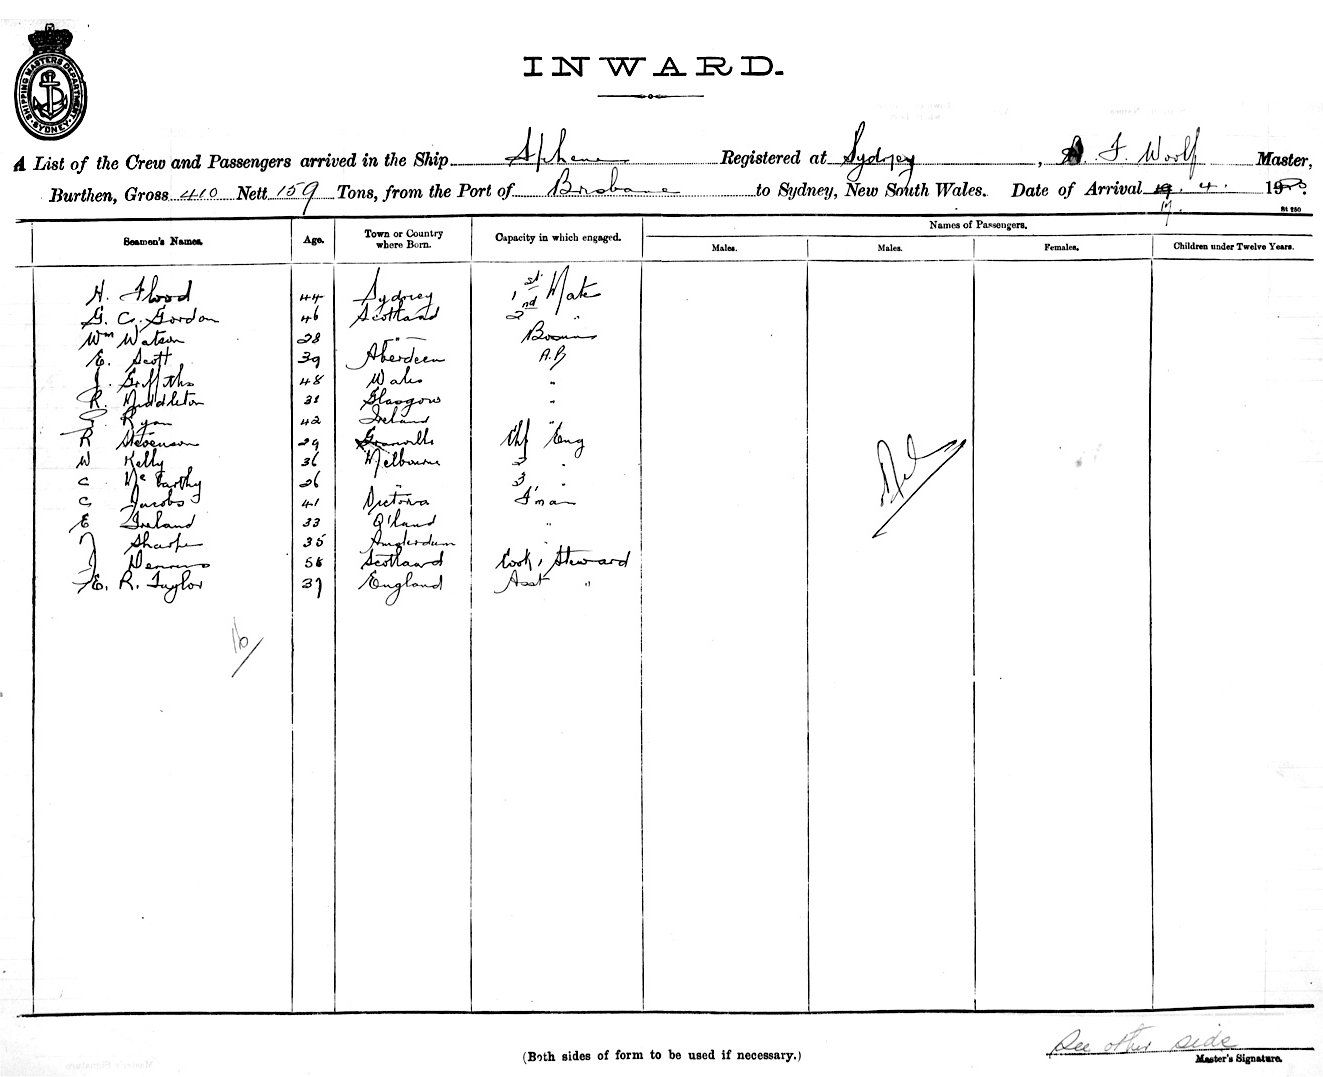 SHIPPING MASTERS DEPARTMENT SYDNEY
INWARD.
A List of the Crew and Passengers arrived in the Ship Aphene Registered at Sydney, F. Woolf Master,
Burthen, Gross 410 Nett 159 Tons, from the Port of Brisbane to Sydney, New South Wales. Date of Arrival 4. 19
17.
St 250
Seamen's Names. Age. Town or Country where Born. Capacity in which engaged. Names of Passengers.
Males. Males. Females. Children under Twelve Years.
H. Flood 44 Sydney 1st Mate
G. C. Gordon 46 Scotland 2nd "
Wm Watson 28 " Bosun
E. Scott 39 Aberdeen A.B
J. Griffiths 48 Wales "
R. Middleton 31 Glasgow "
Ryan 42 Ireland "
R Stevenson 29 Granville Chf Eng
W Kelly 36 Melbourne 2 "
C McCarthy 26 " 3 "
C Jacobs 41 Victoria F'man
E Ireland 33 Q'land "
J Sharpe 35 Amsterdam "
J Dennis Scotland Cook & Steward
E. R. Taylor 37 England Asst "
Nil
16
See other side
(Both sides of form to be used if necessary.) Master's Signature.